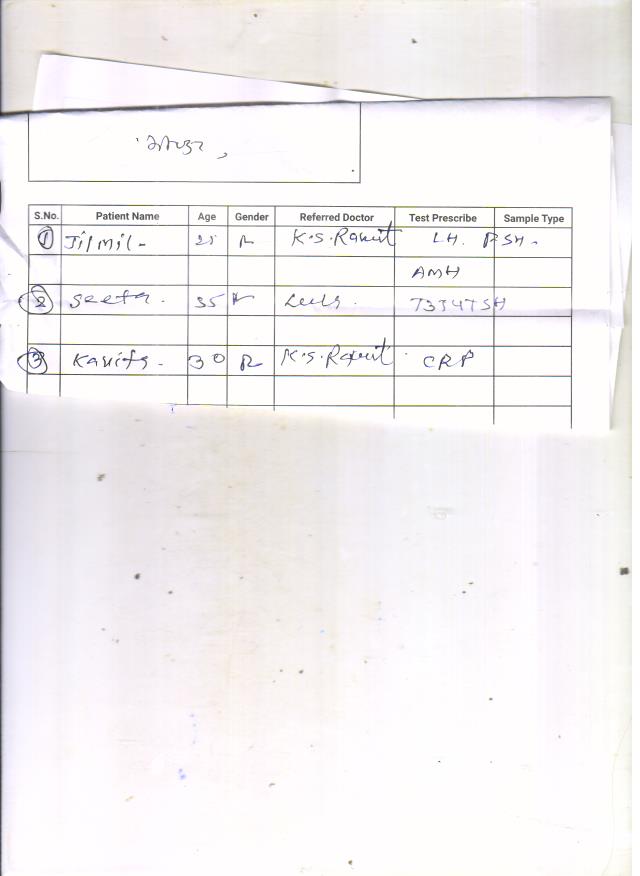 S.No. Patient Name Age Gender Referred Doctor Test Prescribe Sample Type
① Jilmil - 25 F K.S. Rawat LH. FSH.
AMH
② Seeta. 35 F T3T4TSH
③ Kavita. 30 F K.S. Rawat. CRP